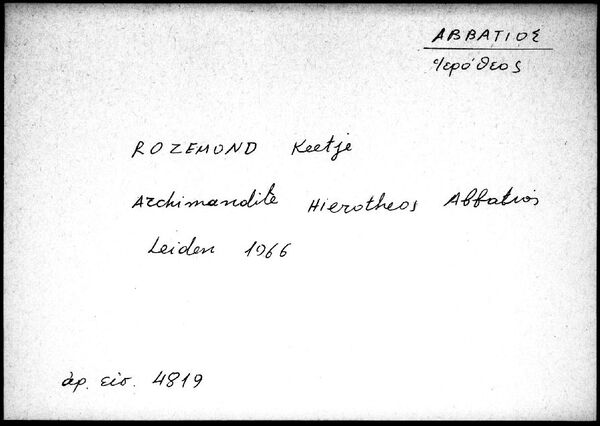 ΑΒΒΑΤΙΟΣ
Ἱερόθεος
ROZEMOND Keetje
Archimandite Hierotheos Abbatios
Leiden 1966
ἀρ. εἰσ. 4819